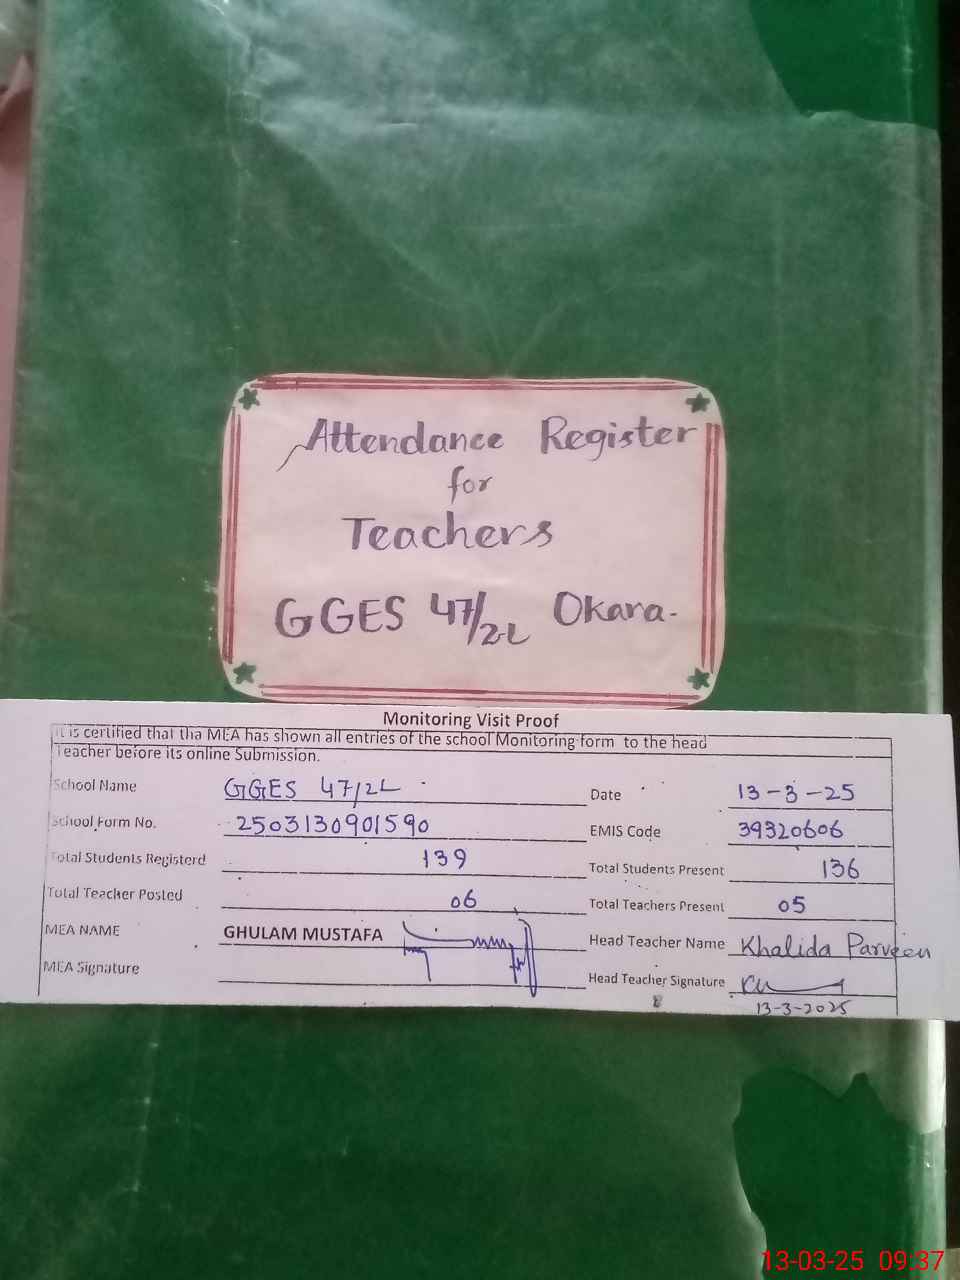 Attendance Register
for
Teachers
GGES 47/2-L Okara-
Monitoring Visit Proof
It is certified that tha MEA has shown all entries of the school Monitoring form to the head
Teacher before its online Submission.
School Name GGES 47/2L Date 13-3-25
School Form No. 2503130901590 EMIS Code 39320606
Total Students Registerd 139 Total Students Present 136
Total Teacher Posted 06 Total Teachers Present 05
MEA NAME GHULAM MUSTAFA Head Teacher Name Khalida Parveen
MEA Signature Head Teacher Signature
13-3-2025
13-03-25 09:37